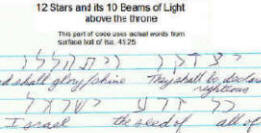 12 Stars and its 10 Beams of Light
above the throne
This part of code uses actual words from
surface text of Isa. 45:25
יצדקו ויתהללו
shall glory/shine They shall be
righteous
כל זרע ישראל
Israel the seed of all of